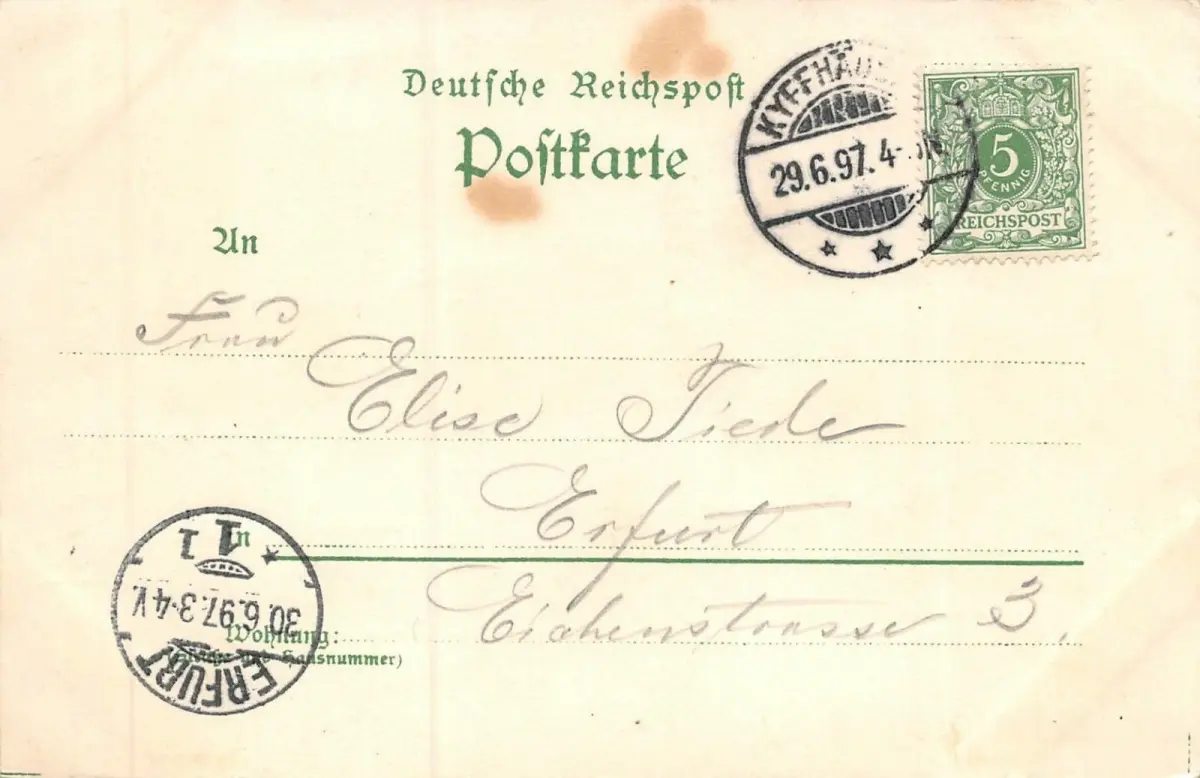 Deutsche Reichspost
Postkarte
KYFFHÄUS
29.6.97.4-5N
5
PFENNIG
REICHSPOST
An
Frau
Elise Tiede
Erfurt
In
Eichenstrasse 3.
Wohnung:
Hausnummer)
ERFURT
30.6.97.3-4V.
1 1